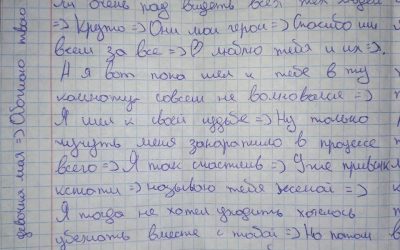 ли очень рад видеть всех тех людей
=) Крутто =) Они мои герои =) Спасибо им
всем за все =) ♡ люблю тебя и их =).
А я вот пока шел к тебе в ту
комнату совсем не волновался =)
Я шел к своей судьбе =) Ну только
чучуть меня закоратило в процессе
всего =) Я так счастлив =) Уже привык
кстати =) называю тебя женой =)
Я тогда не хотел уходить хотелось
убежать вместе с тобой =) Но потом
девочка моя =) Обожаю твою